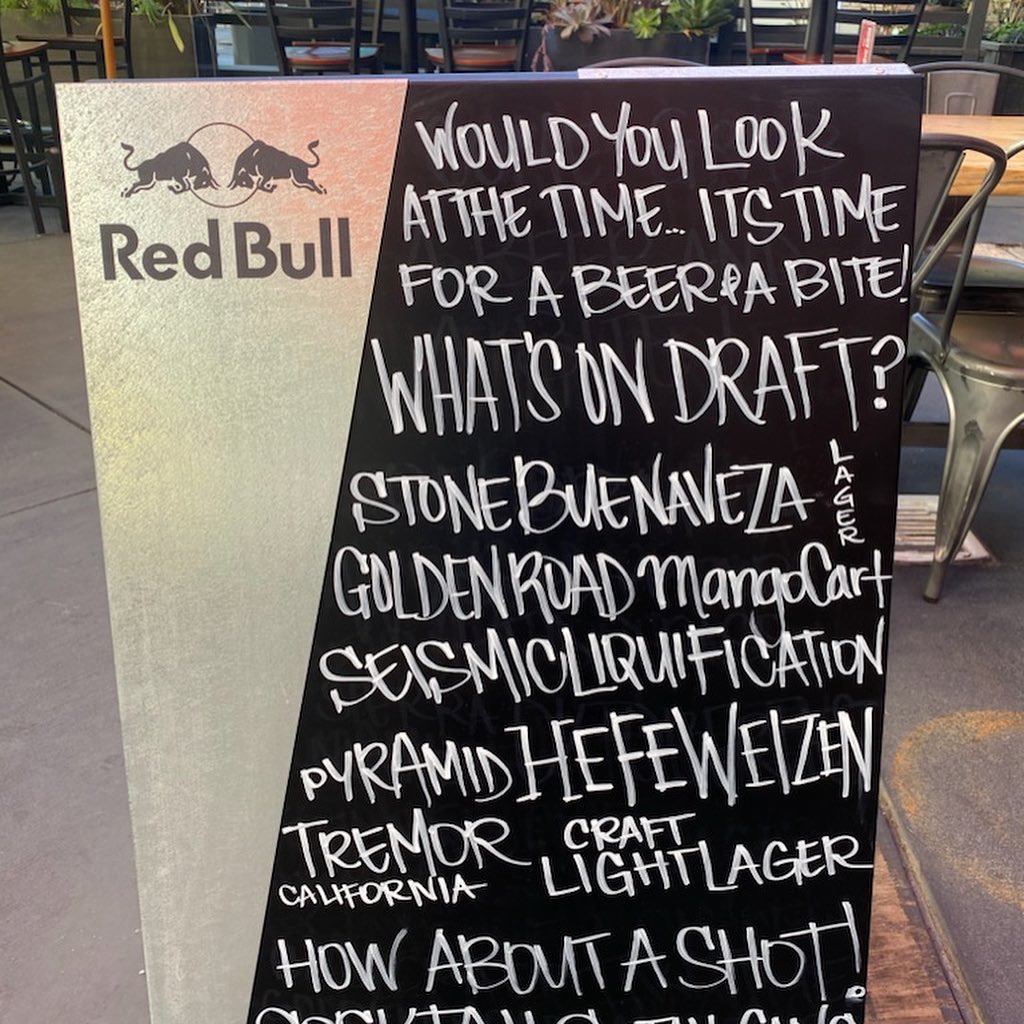 Red Bull
WOULD YOU LOOK
AT THE TIME... ITS TIME
FOR A BEER & A BITE!
WHAT'S ON DRAFT?
STONE BUENAVEZA LAGER
GOLDEN ROAD MangoCart
SEISMIC LIQUIFICATION
PYRAMID HEFEWEIZEN
TREMOR CRAFT
CALIFORNIA LIGHT LAGER
HOW ABOUT A SHOT!